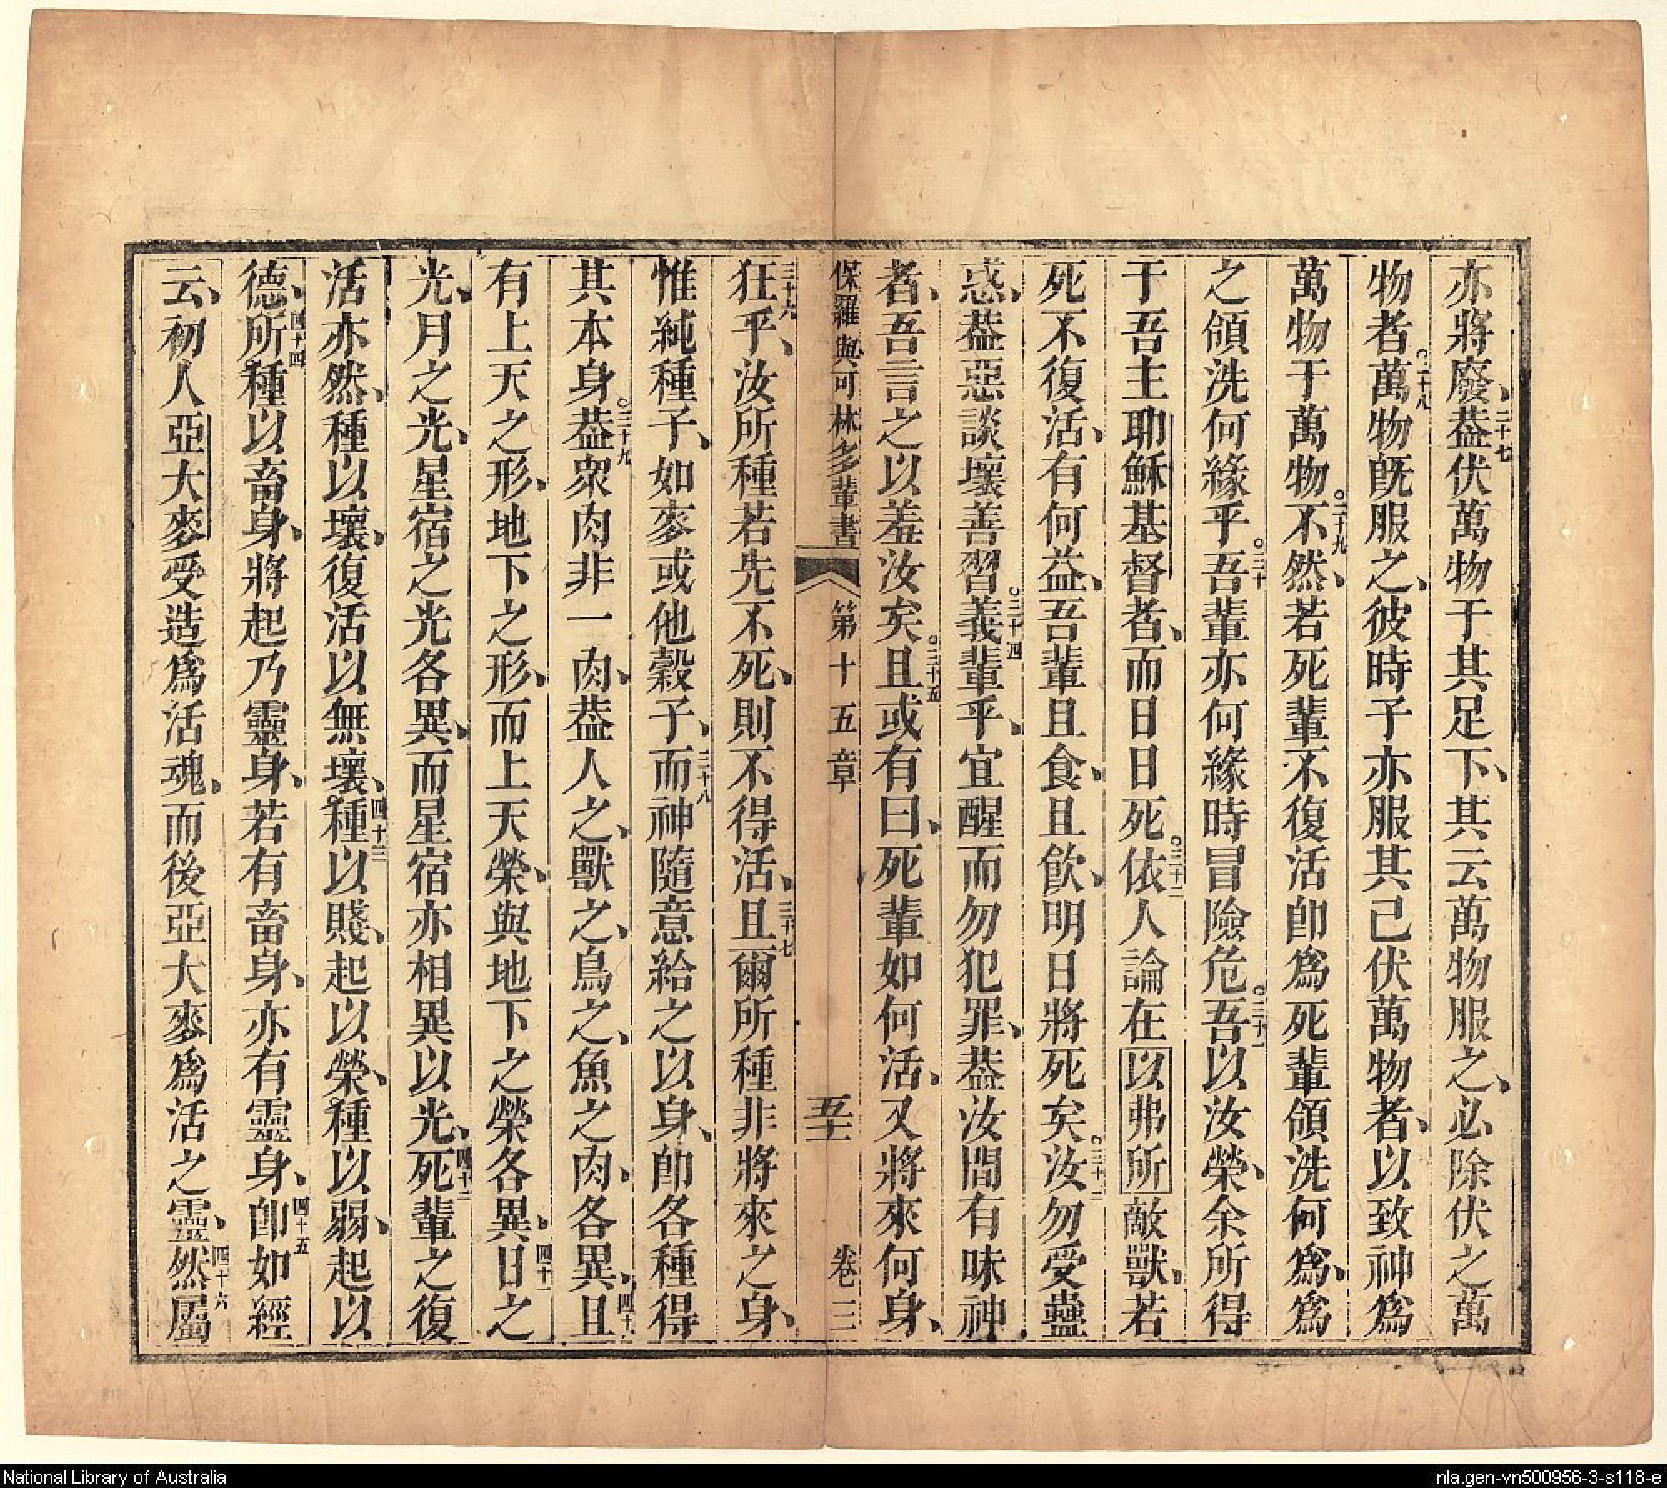 亦將廢、二十七葢伏萬物于其足下、其云萬物服之、必除伏之萬
物者。二十八萬物旣服之、彼時子亦服其已伏萬物者、以致神爲
萬物于萬物。二十九不然、若死輩不復活卽爲死輩領洗何爲、爲
之領洗何緣乎。三十吾輩亦何緣時冒險危。三十一吾以汝榮、余所得
于吾主耶穌基督者、而日日死。三十二依人論在以弗所敵獸、若
死不復活、有何益、吾輩且食、且飲、明日將死矣。三十三汝勿受蠱
惑、葢惡談壞善習。三十四義輩乎、宜醒而勿犯罪、葢汝間有味神
者、吾言之以羞汝矣。三十五且或有曰、死輩如何活、又將來何身、
保羅與可林多輩書 第十五章 五十 卷三
三十六狂乎、汝所種若先不死、則不得活、三十七且爾所種非將來之身、
惟純種子、如麥或他穀子、三十八而神隨意給之以身、卽各種得
其本身。三十九葢衆肉非一肉、葢人之、獸之、鳥之、魚之肉、各異、四十且
有上天之形、地下之形、而上天榮、與地下之榮各異、四十一日之
光、月之光、星宿之光各異、而星宿亦相異以光、四十二死輩之復
活亦然、種以壞、復活以無壞、四十三種以賤、起以榮、種以弱、起以
德、四十四所種以畜身、將起乃靈身、若有畜身、亦有靈身、四十五卽如經
云、初人亞大麥受造爲活魂、而後亞大麥爲活之靈、四十六然屬
National Library of Australia
nla.gen-vn500956-3-s118-e